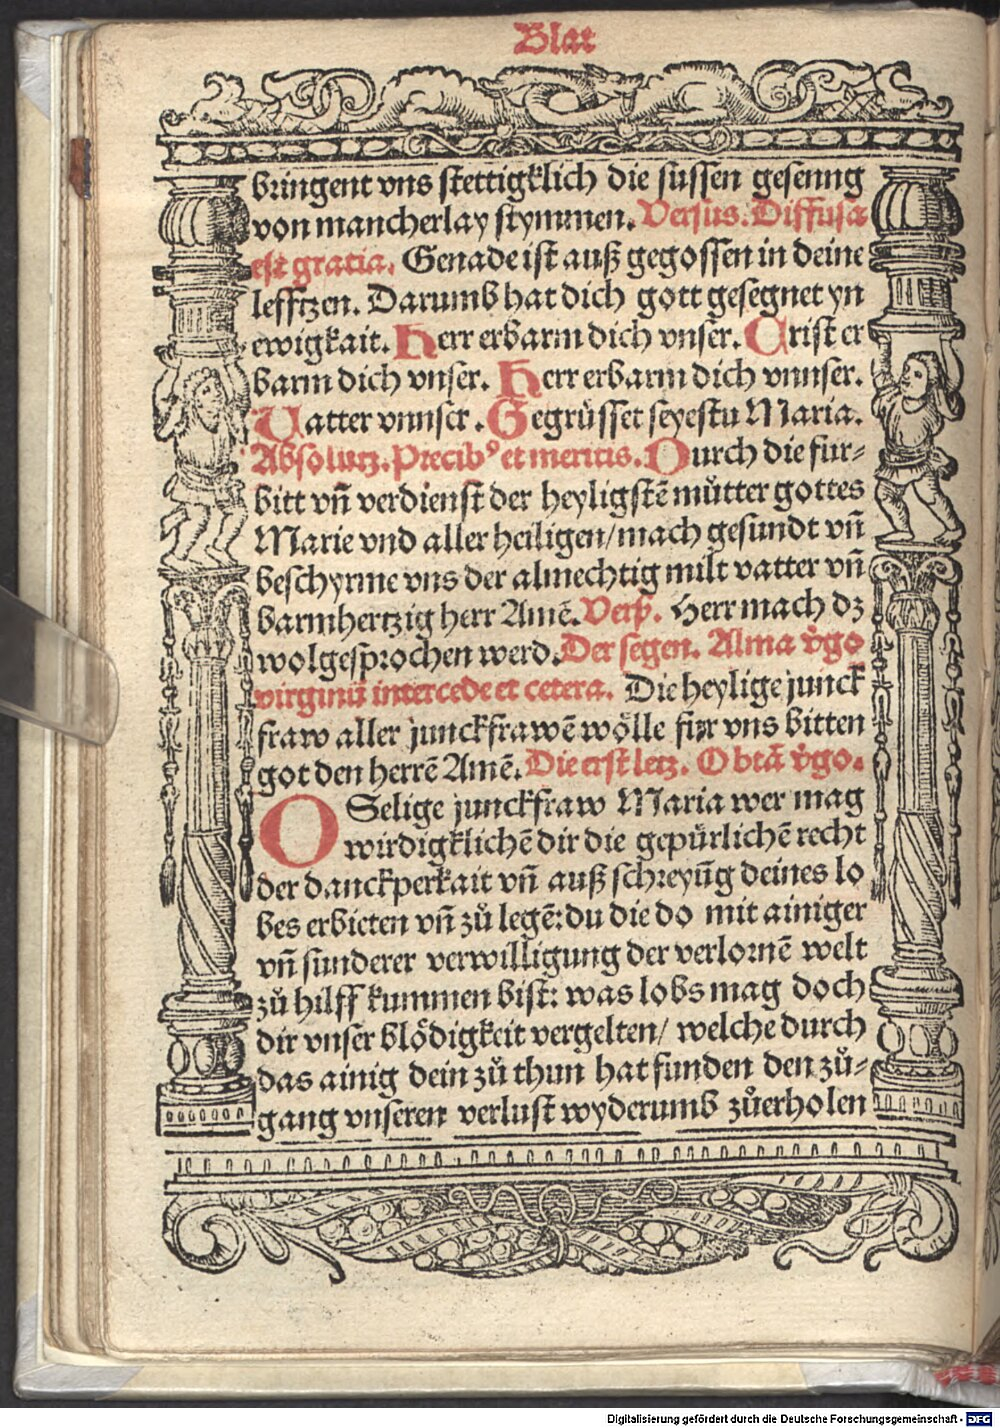 Blat
bringent vns stettigklich die süssen gesenng
von mancherlay stymmen. Versus. Diffusa
est gratia. Genade ist auß gegossen in deine
lefftzen. Darumb hat dich gott gesegnet yn
ewigkait. Herr erbarm dich vnser. Crist er
barm dich vnser. Herr erbarm dich vnnser.
Vatter vnnser. Gegrüsset seyestu Maria.
Absolutz. Precibꝰ et meritis. Durch die fur⸗
bitt vñ verdienst der heyligstẽ můtter gottes
Marie vnd aller heiligen/mach gesundt vñ
beschyrme vns der almechtig milt vatter vñ
barmhertzig herr Amẽ. Versꝭ. Herr mach dz
wolgesprochen werd. Der segen. Alma v̾go
virginũ intercede et cetera. Die heylige junck
fraw aller junckfrawẽ wölle für vns bitten
got den herrẽ Amẽ. Die erst letz. O btã v̾go.
O Selige junckfraw Maria wer mag
wirdigklichẽ dir die gepürlichẽ recht
der danckperkait vñ auß schreyũg deines lo
bes erbieten vñ zů legẽ: du die do mit ainiger
vñ sunderer verwilligung der verlornẽ welt
zů hilff kummen bist: was lobs mag doch
dir vnser blödigkeit vergelten/ welche durch
das ainig dein zů thun hat funden den zů⸗
gang vnseren verlust wyderumb zůerholen
Digitalisierung gefördert durch die Deutsche Forschungsgemeinschaft - DFG